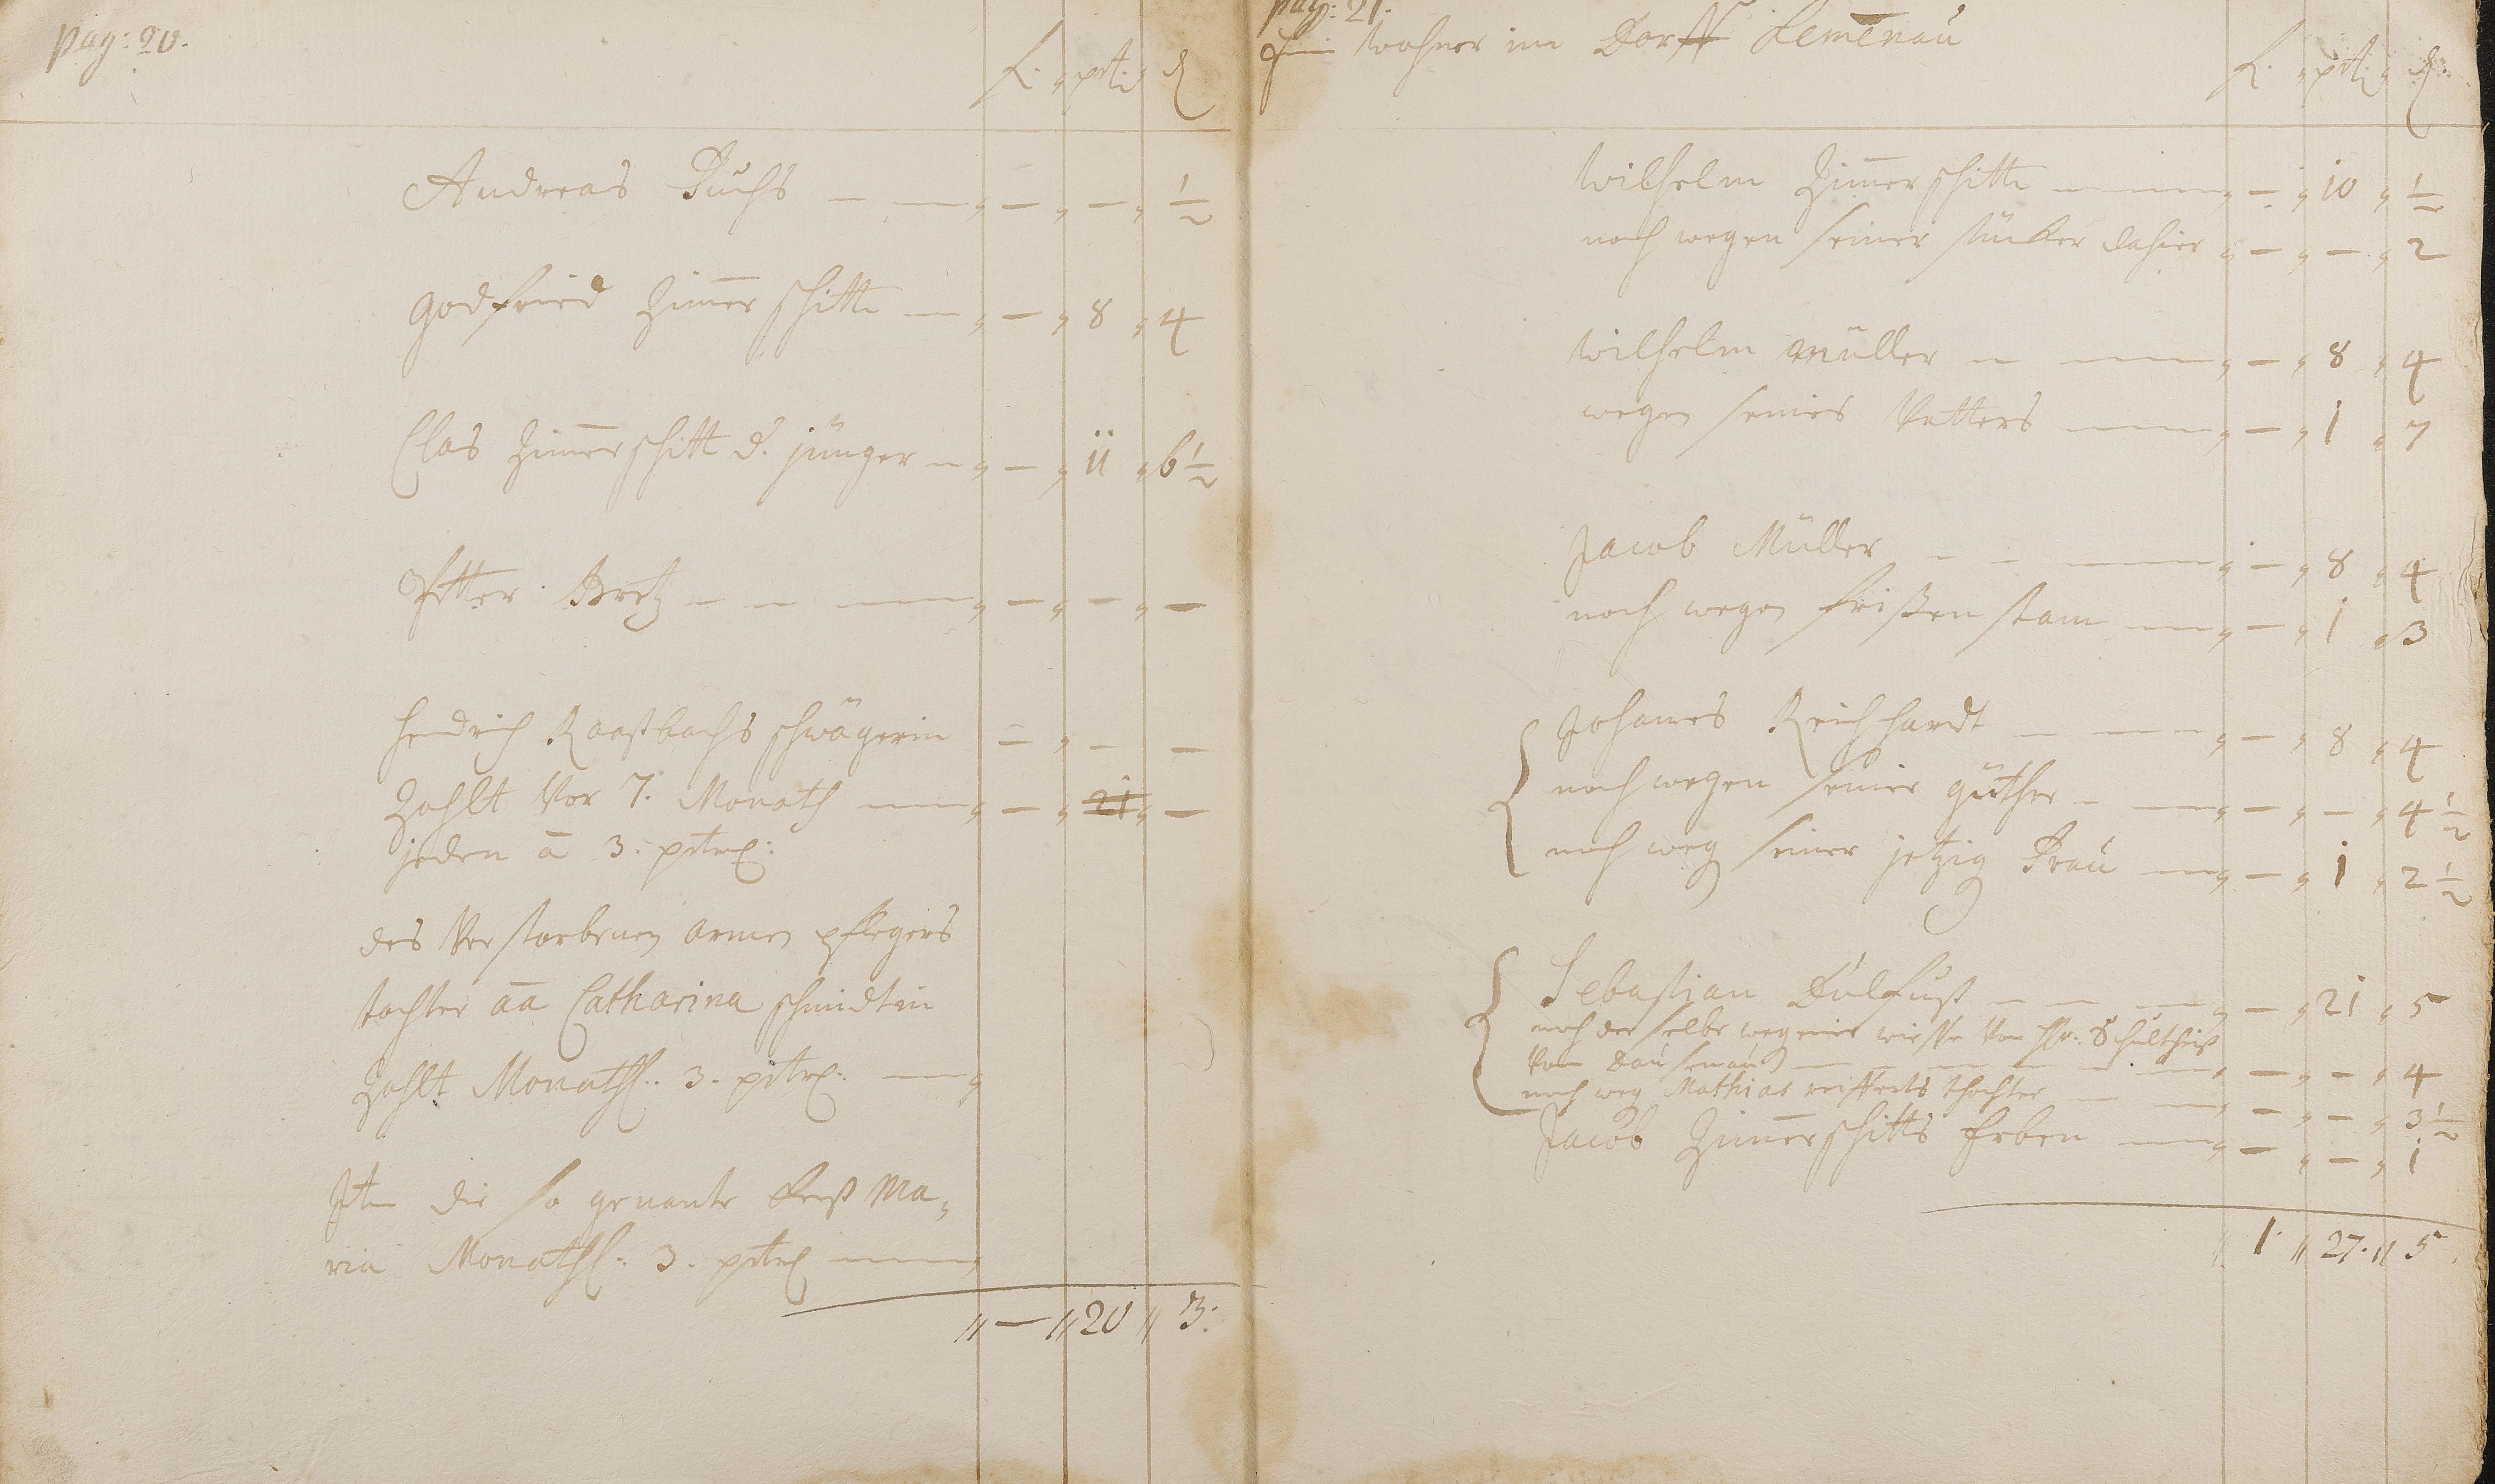 pag: 20.
fl. " ptr: " d
Andreas Fuchs — — " — " — " ½
Godfried Zimerschitt — " — " 8 " 4
Clas Zimerschitt d. jünger — " — " 11 " 6½
Petter Bretz — — — " — " — " —
Hendrich Raaßbachs schwägerin — " — —
Zahlt Vor 7. Monath — " — " 21 " —
jeden a 3. ptr:
des Verstorbenen armen pflegers
tochter aa Catharina schmidtin
Zahlt Monathl. 3. petr. — "
Itm die so genante Ma-
ria Monathl. 3. petr — "
" — " 20 " 3.
pag: 21.
Einwohner im Dorff Kemenau
fl. " ptr: " d.
Wilhelm Zimerschitt — " — " 10 " ½
noch wegen seiner stücker dahier " — " — " 2
Wilhelm müller — — " — " 8 " 4
wegen seines Vatters — " — " 1 " 7
Jacob Müller — — — " — " 8 " 4
noch wegen stam — " — " 1 " 3
Johannes Reichhardt — — " — " 8 " 4
noch wegen seiner güther — — " — " — " 4½
noch weg seiner jetzig Frau — " — " 1 " 2½
Sebastian Dölfuß — — — " — " 21 " 5
noch der selbe weg einer wiesse Von Hr. Schultheiß
Von Dausenau — — — — " — " — " 4
noch weg Mathias reifferts thochter — — " — " — " 3½
Jacob Zimerschitts Erben — " — " — " 1
" 1 " 27. " 5.